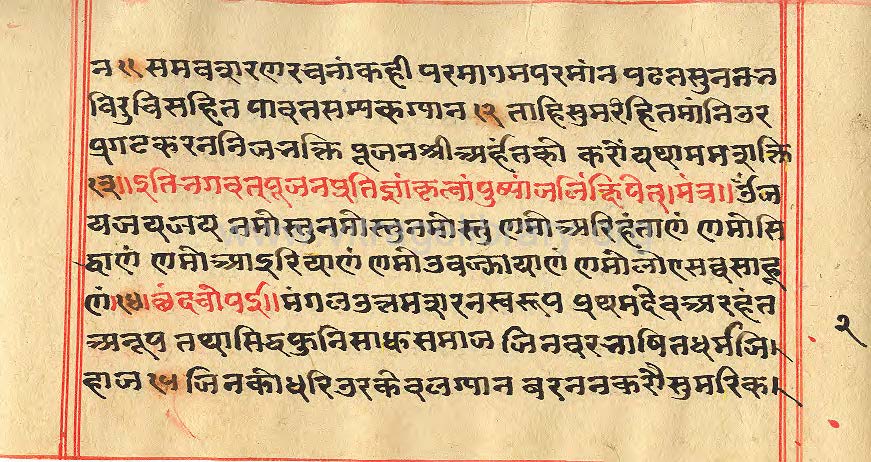 न ११ समवशरण रचनां कही परमागमपरमांन पढतसुनतन
विरुचिसहित पावतसम्यकग्यान १२ ताहिसुमरिहितमांनिउर
प्रगटकरननिजभक्ति पूजनश्रीअर्हंतकी करौंयथाममशक्ति
१३॥इतिभगवत्पूजनप्रतिज्ञांकृत्वांपुष्पांजलिंक्षिपेत्॥मंत्र॥ ॐज
यजयजय नमोस्तुनमोस्तुनमोस्तु णमोअरिहंताणं णमोसि
द्धाणं णमोआइरियाणं णमोउवज्झायाणं णमोलोएसव्वसाहू
णं॥१४॥छंदचौपई॥मंगलउत्तमशरनस्वरूप प्रथमदेवअरहंत
अनूप तथासिद्धफुनिसाधसमाज जिनवरभाषितधर्मजि।
हाज १५ जिनकौधरिउरकेवलग्यान वरननकरौसुमरिक।
२